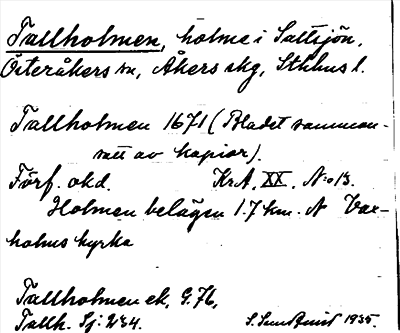 Tallholmen, holme i Saltsjön,
Österåkers sn, Åkers skg, Sthlms l.
Tallholmen 1671 (Bladet samman-
satt av kopior).
Förf. okd. Kr.A. XX. N:o 13.
Holmen belägen 1.7 km. N Vax-
holms kyrka
Tallholmen ek, G. 76,
Tallh. Sj: 234. S. Sundquist 1935.